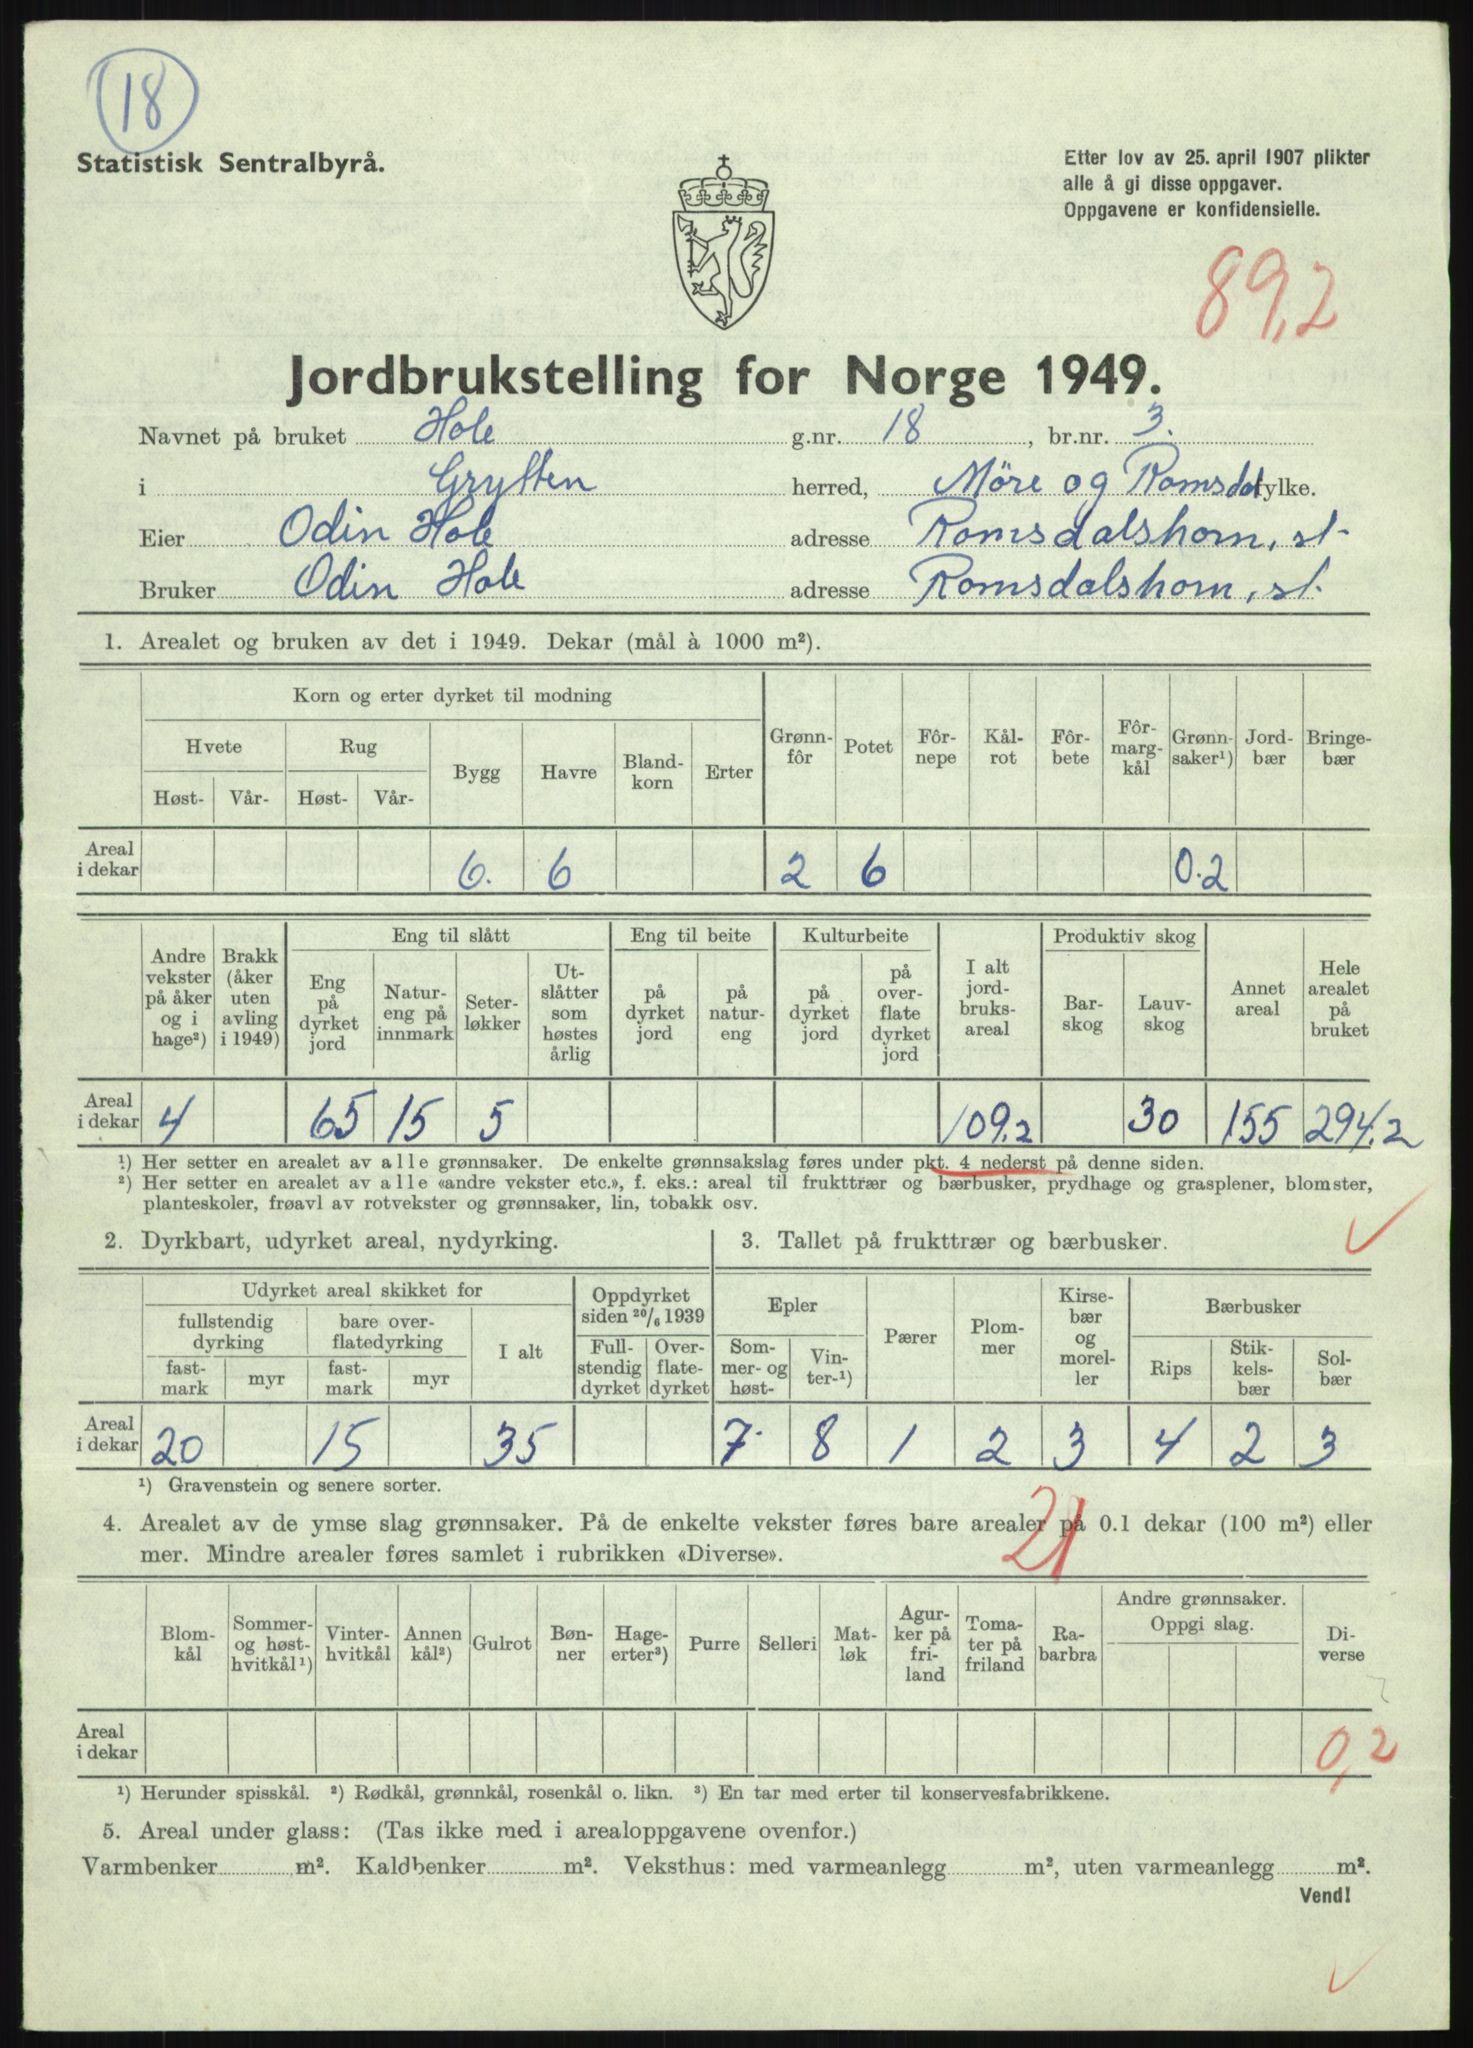 18
Statistisk Sentralbyrå.
Etter lov av 25. april 1907 plikter
alle å gi disse oppgaver.
Oppgavene er konfidensielle.
89,2
Jordbrukstelling for Norge 1949.
Navnet på bruket Hole g.nr. 18, br.nr. 3.
i Grytten herred, Möre og Romsdal fylke.
Eier Odin Hole adresse Romsdalshorn, st.
Bruker Odin Hole adresse Romsdalshorn, st.
1. Arealet og bruken av det i 1949. Dekar (mål à 1000 m²).
Korn og erter dyrket til modning
Hvete Rug Bygg Havre Bland-korn Erter Grønn-fôr Potet Fôr-nepe Kål-rot Fôr-bete Fôr-marg-kål Grønn-saker¹) Jord-bær Bringe-bær
Høst- Vår- Høst- Vår-
Areal i dekar 6. 6 2 6 0.2
Andre vekster på åker og i hage²) Brakk (åker uten avling i 1949) Eng til slått Eng til beite Kulturbeite I alt jord-bruks-areal Produktiv skog Annet areal Hele arealet på bruket
Eng på dyrket jord Natur-eng på innmark Seter-løkker Ut-slåtter som høstes årlig på dyrket jord på natur-eng på dyrket jord på over-flate dyrket jord Bar-skog Lauv-skog
Areal i dekar 4 65 15 5 109,2 30 155 294,2
¹) Her setter en arealet av alle grønnsaker. De enkelte grønnsakslag føres under pkt. 4 nederst på denne siden.
²) Her setter en arealet av alle «andre vekster etc.», f. eks.: areal til frukttrær og bærbusker, prydhage og grasplener, blomster,
planteskoler, frøavl av rotvekster og grønnsaker, lin, tobakk osv.
2. Dyrkbart, udyrket areal, nydyrking.
3. Tallet på frukttrær og bærbusker.
Udyrket areal skikket for Oppdyrket siden 20/6 1939 Epler Pærer Plom-mer Kirse-bær og morel-ler Bærbusker
fullstendig dyrking bare over-flatedyrking I alt Full-stendig dyrket Over-flate-dyrket Som-mer- og høst- Vin-ter-¹) Rips Stik-kels-bær Sol-bær
fast-mark myr fast-mark myr
Areal i dekar 20 15 35 7. 8 1 2 3 4 2 3
¹) Gravenstein og senere sorter.
21
4. Arealet av de ymse slag grønnsaker. På de enkelte vekster føres bare arealer på 0.1 dekar (100 m²) eller
mer. Mindre arealer føres samlet i rubrikken «Diverse».
Blom-kål Sommer- og høst-hvitkål¹) Vinter-hvitkål Annen kål²) Gulrot Bøn-ner Hage-erter³) Purre Selleri Mat-løk Agur-ker på fri-land Toma-ter på friland Ra-barbra Andre grønnsaker. Oppgi slag. Di-verse
Areal i dekar 0,2
¹) Herunder spisskål. ²) Rødkål, grønnkål, rosenkål o. likn. ³) En tar med erter til konservesfabrikkene.
5. Areal under glass: (Tas ikke med i arealoppgavene ovenfor.)
Varmbenker m². Kaldbenker m². Veksthus: med varmeanlegg m², uten varmeanlegg m².
Vend!